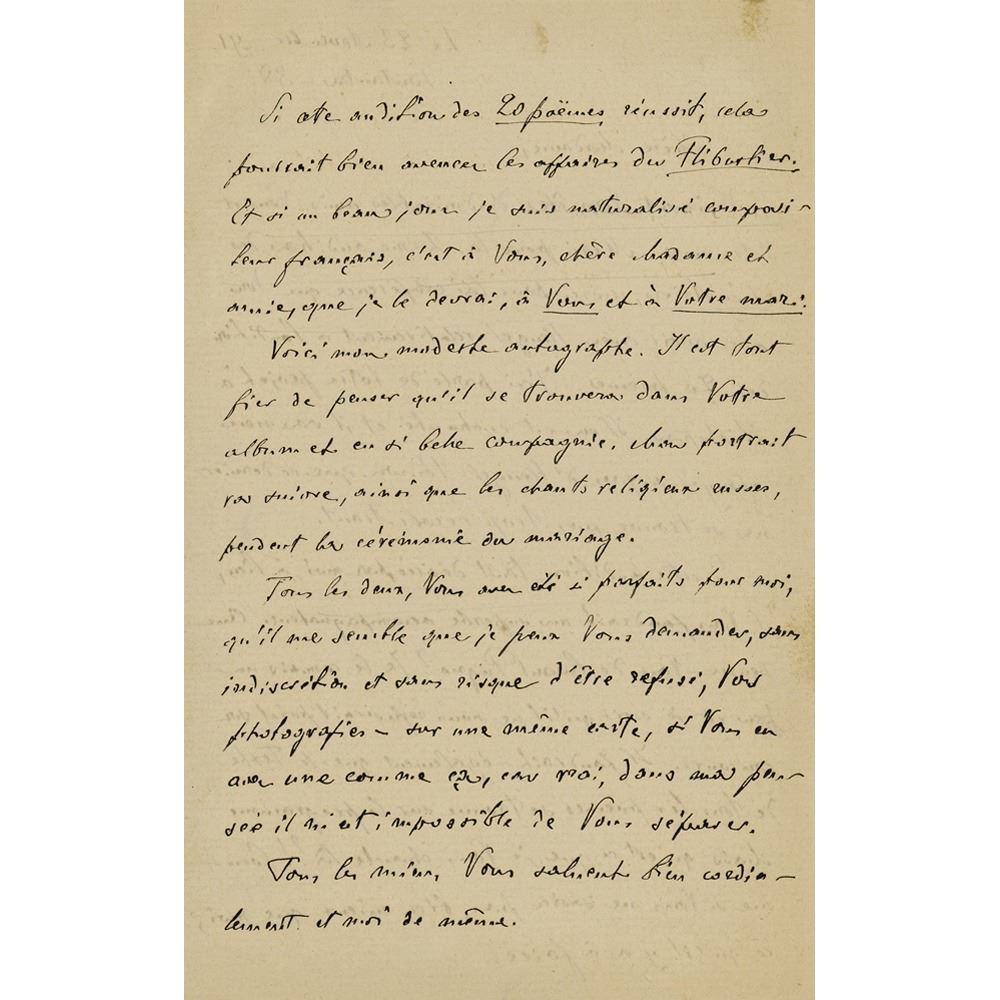 Si cette audition des 20 poëmes réussit, cela
pourrait bien avancer les affaires du Flibustier.
Et si un beau jour je suis naturalisé composi-
teur français, c'est à Vous, chère Madame et
amie, que je le devrai, à Vous et à Votre mari.
Voici mon modeste autographe. Il est tout
fier de penser qu'il se trouvera dans Votre
album et en si belle compagnie. Mon portrait
va suivre, ainsi que les chants religieux russes,
pendant la cérémonie du mariage.
Tous les deux, Vous avez été si parfaits pour moi,
qu'il me semble que je peux Vous demander, sans
indiscrétion et sans risque d'être refusé, Vos
photografies – sur une même carte, si Vous en
avez une comme ça, car vrai, dans ma pen-
sée il m'est impossible de Vous séparer.
Tous les miens Vous saluent bien cordia-
lement et moi de même.